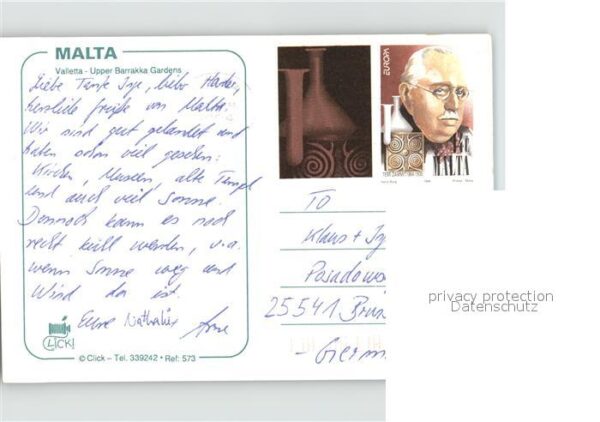 MALTA
Valletta - Upper Barrakka Gardens
Liebe Tante Inge, liebe
herzliche Grüße von Malta.
Wir sind gut gelandet und
haben schon viel gesehen:
Kirchen, Museen, alte Tempel
und auch viel Sonne.
Dennoch kann es noch
recht kühl werden, v.a.
wenn Sonne weg und
Wind da ist.
Eure Nathalie
CLICK!
© Click - Tel. 339242 • Ref: 573
EUROPA
MALTA
TO
Klaus + 
Posadows
25541 Bru
Germ
privacy protection
Datenschutz